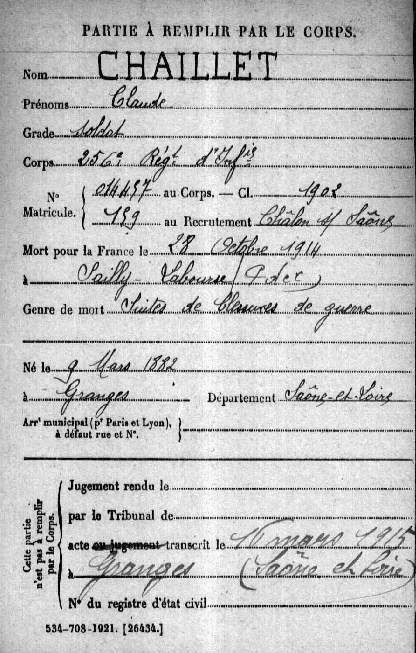 PARTIE À REMPLIR PAR LE CORPS.
Nom CHAILLET
Prénoms Claude
Grade soldat
Corps 256e Régt d'Infie
No 014457 au Corps. — Cl. 1902
Matricule. 159 au Recrutement Châlon s/ Saône
Mort pour la France le 28 Octobre 1914
à Sailly Labourse (P. de C.)
Genre de mort Suites de blessures de guerre
Né le 9 Mars 1882
à Granges Département Saône-et-Loire
Arrt municipal (pr Paris et Lyon),
à défaut rue et No.
Cette partie
n'est pas à remplir
par le Corps.
Jugement rendu le
par le Tribunal de
acte ou jugement transcrit le 16 mars 1915
à Granges (Saône et Loire)
No du registre d'état civil
534-708-1921. [26434.]